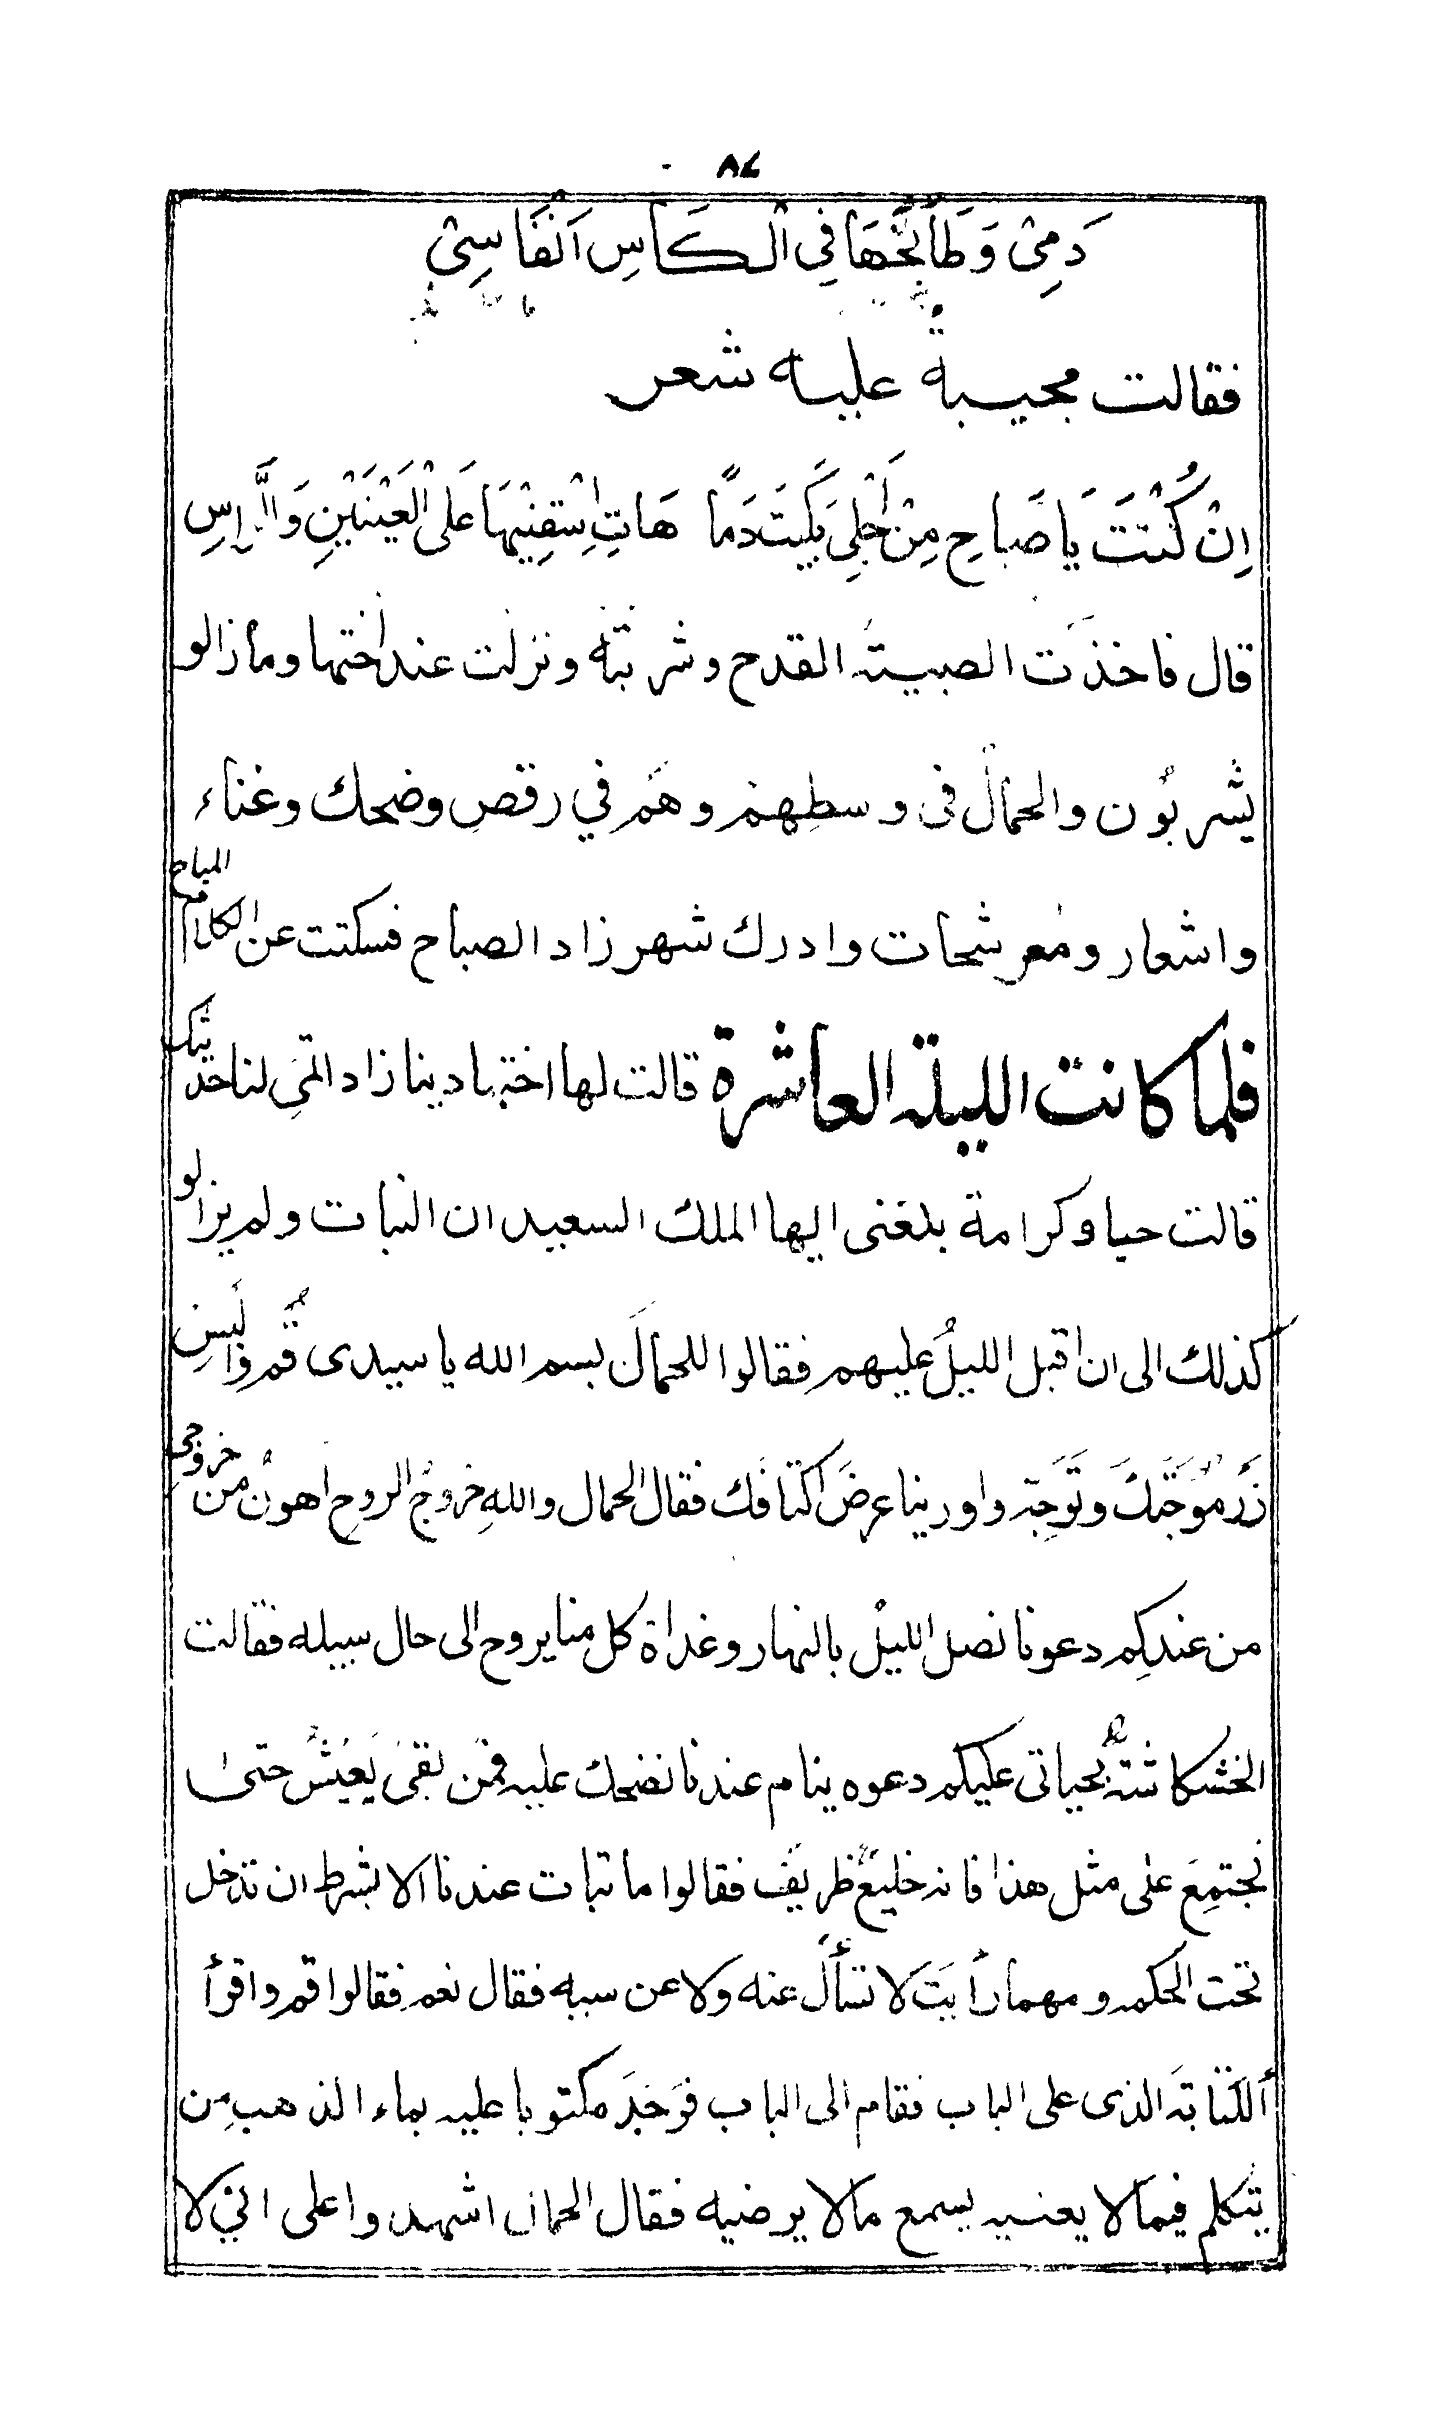 ٨٤
دَمِيْ وَطَابِخُهَا فِي الْكَأْسِ اَنْفَاسِيْ
فقالت مجيبة عليه شعر
اِنْ كُنْتَ يَا صَباحِ مِنْ اَجْلِيَ بَكَيْتَ دَمًا هَاتِ اِسْقِنِيْهَا عَلَى الْعَيْنَيْنِ وَالرَّاسِ
قال فاخذت الصبية القدح وشربته ونزلت عند اختها وما زالو
يشربُون والحمال فى وسطهم وهُم في رقص وضحك وغناء
واشعار وموشحات وادرك شهرزاد الصباح فسكتت عن الكلام المباح
فلما كانت الليلة العاشرة قالت لها اختها دينا زاد اتمي لنا حديثك
قالت حبا وكرامة بلغنى ايها الملك السعيد ان البنات ولم يزالو
كذلك الى ان اقبل الليل عليهم فقالوا للحمال بسم الله يا سيدى قُم والبس
زرموجتك وتوجه واورينا عرض اكتافك فقال الحمال والله خروج الروح اهون من خروجى
من عندكم دعونا نصل الليل بالنهار وغداة كل منا يروح الى حال سبيله فقالت
الخشكاشة بحياتى عليكم دعوه ينام عندنا نضحك عليه فمن بقى يعيش حتى
نجتمع على مثل هذا فانه خليع ظريف فقالوا ما تبات عندنا الا بشرط ان تدخل
تحت الحكم ومهما رأيت لا تسأل عنه ولا عن سببه فقال نعم فقالوا قم واقرأ
الكتابة الذى على الباب فقام الى الباب فوجد مكتوبا عليه بماء الذهب من
يتكلم فيما لا يعنيه يسمع ما لا يرضيه فقال الحمال اشهدوا على اني لا